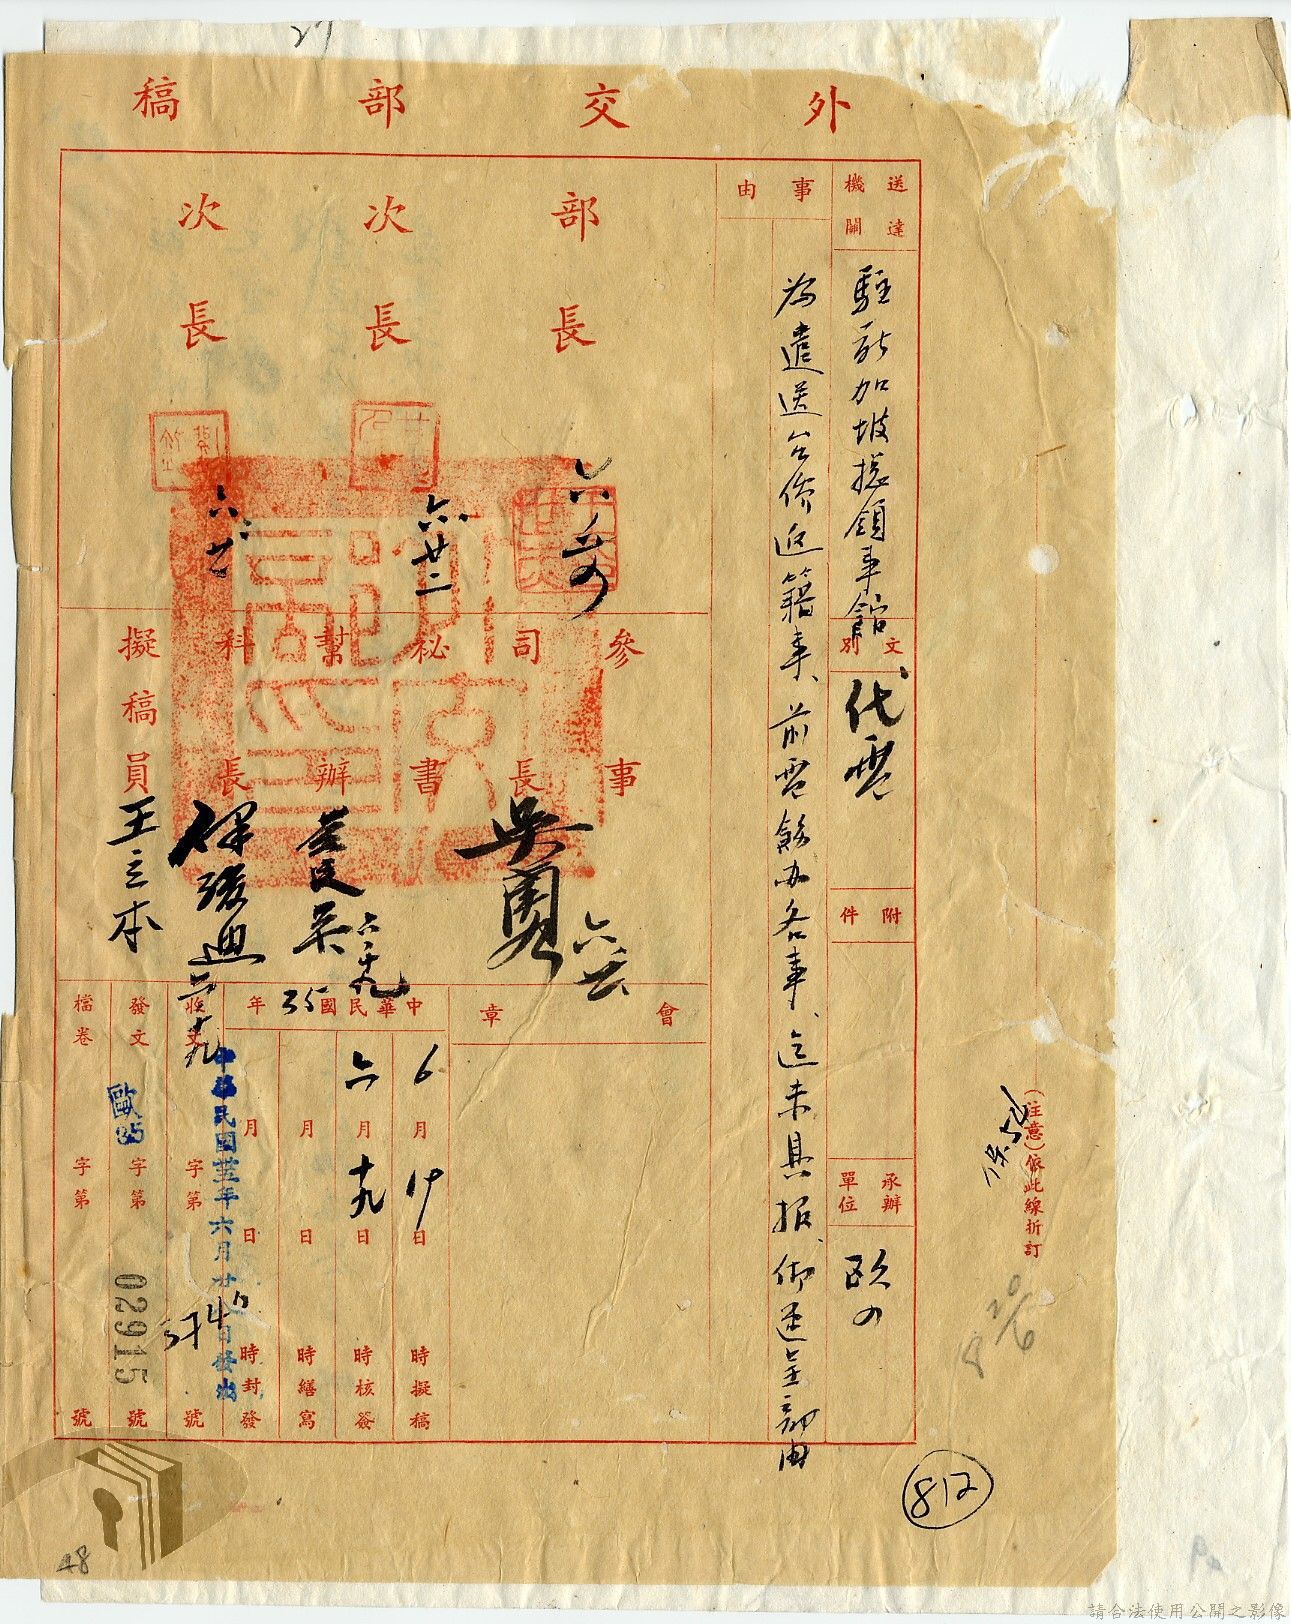 外交部稿
送達機關
駐新加坡總領事館
文別
代電
附件
承辦單位
歐
事由
為遣送台僑返籍事、前電飭辦各事、迄未具報、仰速呈部由
部長
次長
次長
六廿二
參事
司長
秘書
幫辦
科長
擬稿員
六十九
王立本
會章
中華民國35年
6月19日時擬稿
六月十九日時核簽
月日時繕寫
月日時封發
收文字第號
發文歐35字第02915號
檔卷字第號
(注意)依此線折訂
812
48
27
請合法使用公開之影像